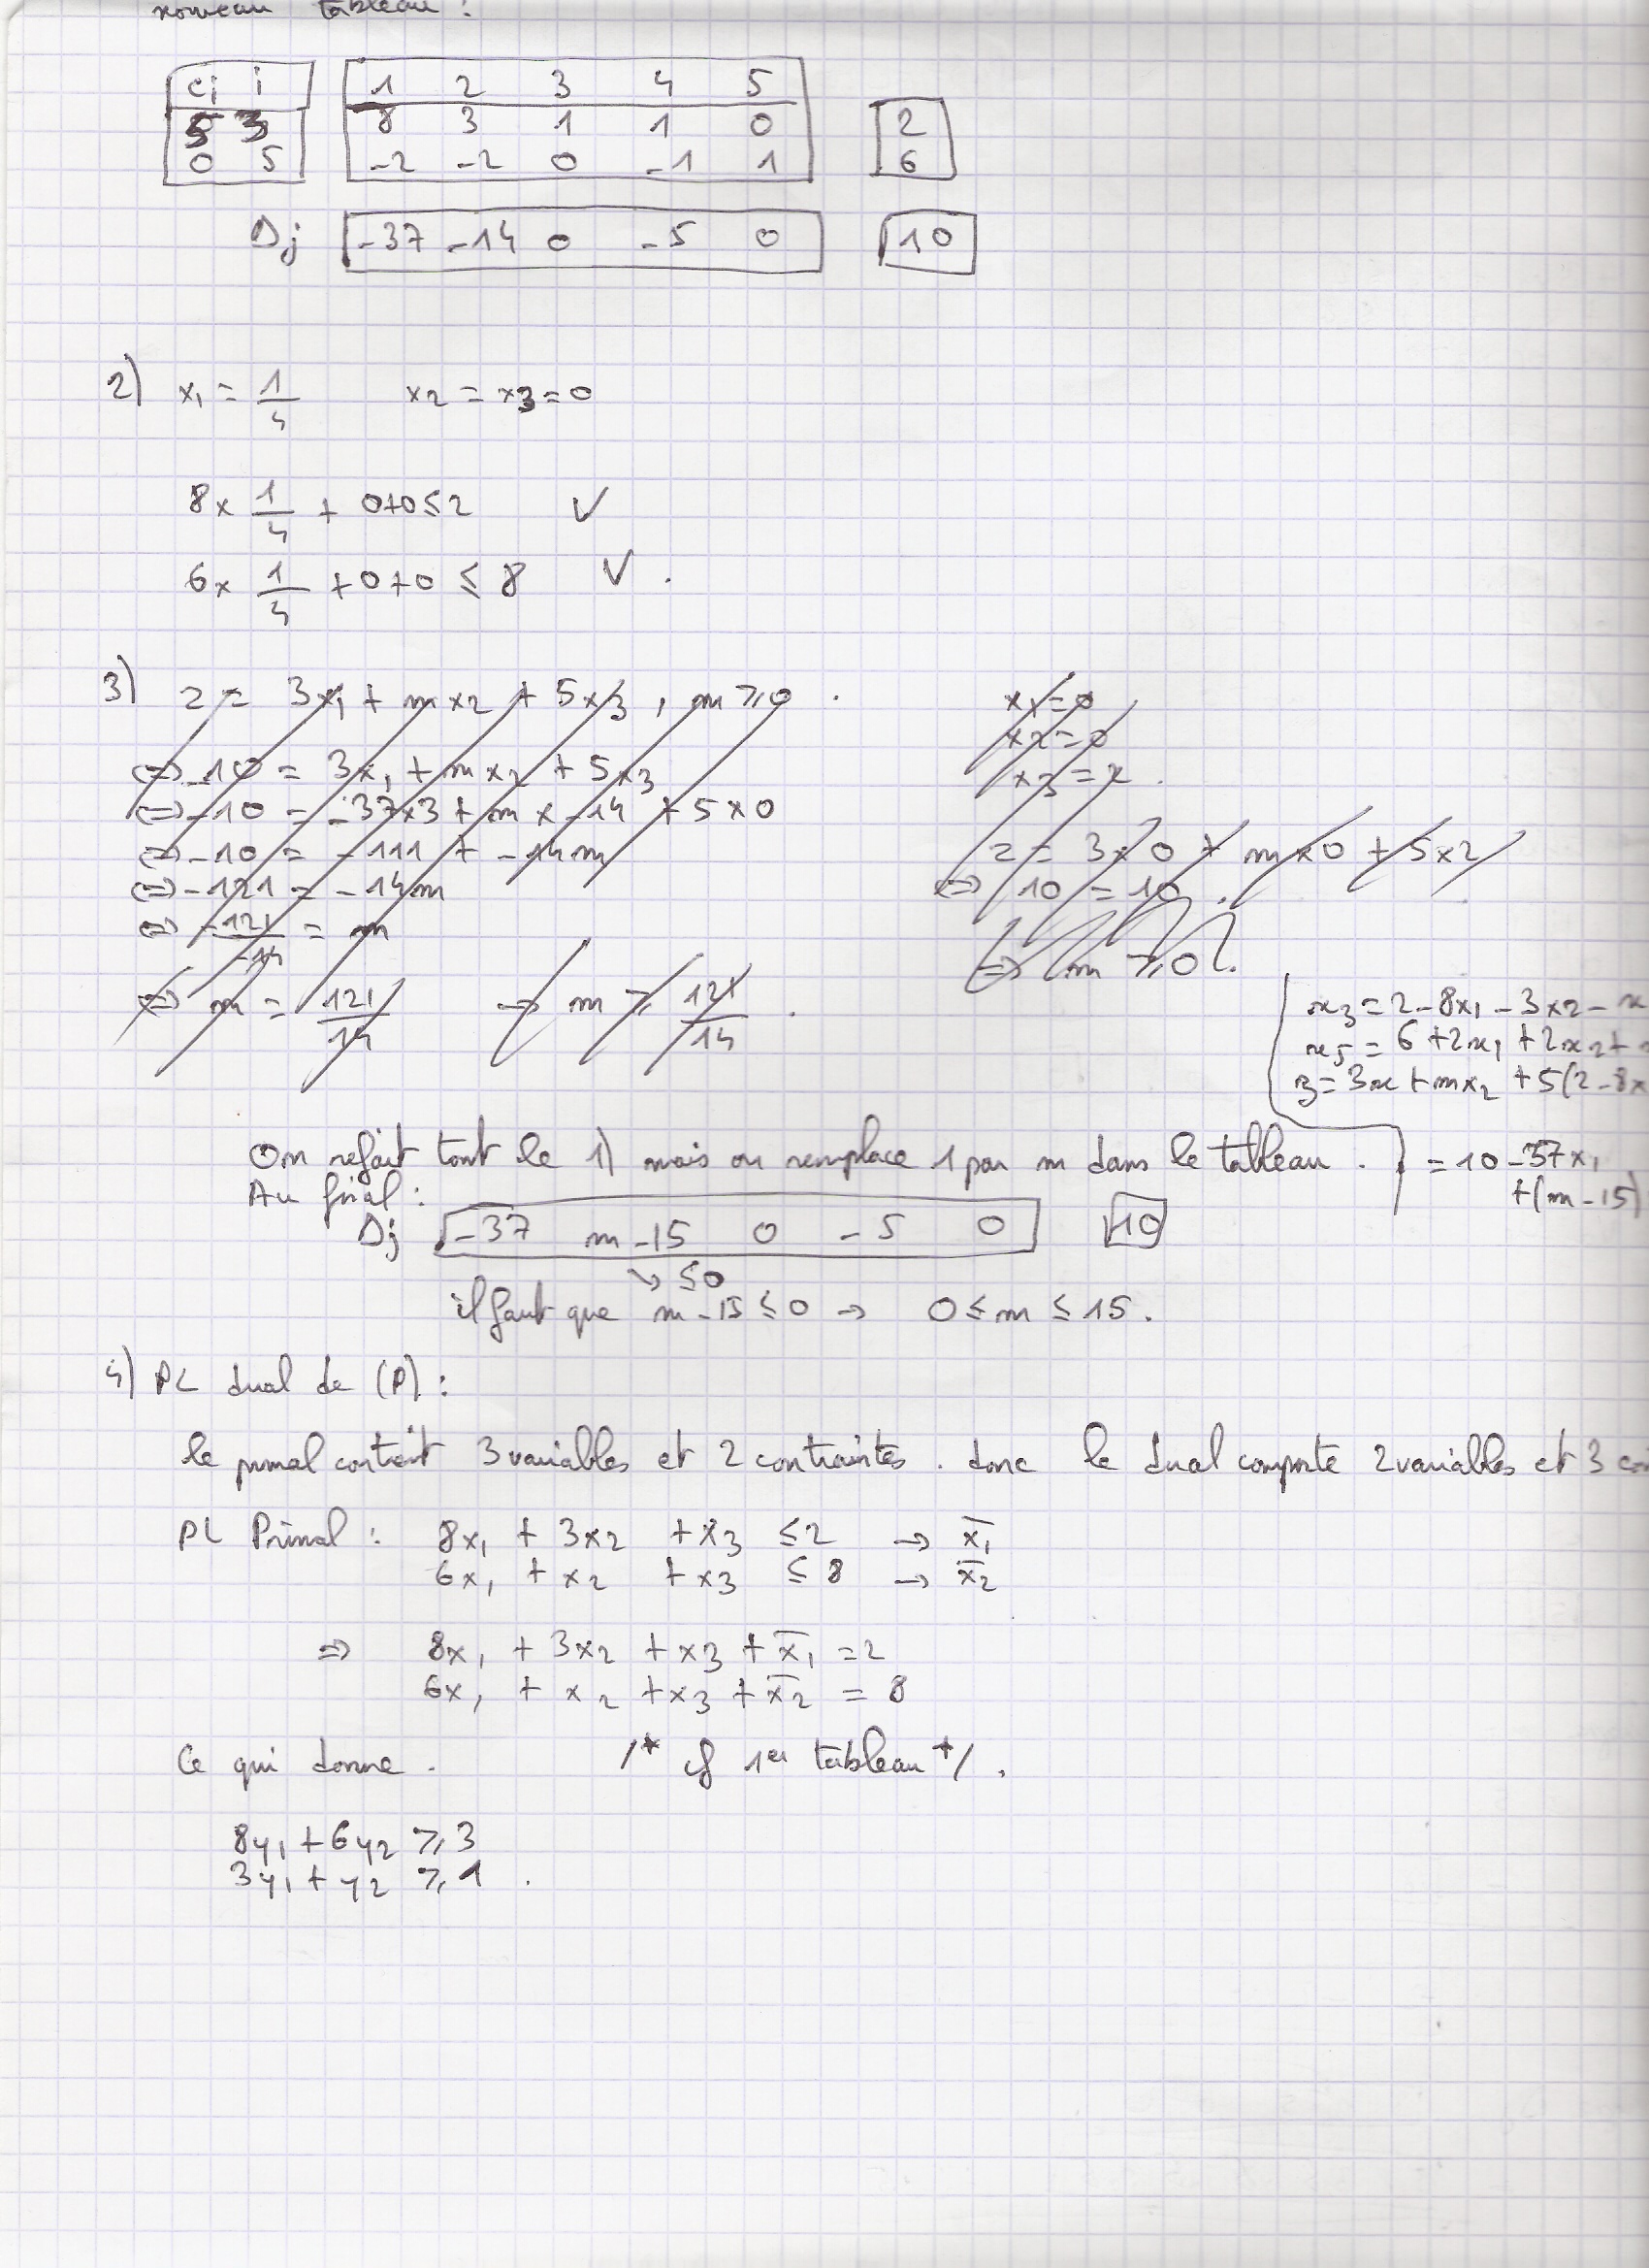 nouveau tableau :
cj i 1 2 3 4 5
5 3 8 3 1 1 0 2
0 5 -2 -2 0 -1 1 6
Dj -37 -14 0 -5 0 10
2) x1 = 1/4 x2 = x3 = 0
8 x 1/4 + 0+0 ≤ 2 V
6 x 1/4 + 0 + 0 ≤ 8 V .
3) z = 3x1 + m x2 + 5x3 , m ≥ 0 .
⇔ -10 = 3x1 + m x2 + 5x3
⇔ -10 = -37x3 + m x -14 + 5 x 0
⇔ -10 = -111 + -14m
⇔ -121 = -14m
⇔ -121/-14 = m
⇔ m = 121/14 → m ≥ 121/14 .
x1 = 0
x2 = 0
x3 = 2 .
z = 3x0 + m x 0 + 5x2
⇔ 10 = 10 .
⇒ m ≥ 0 .
x3 = 2 - 8x1 - 3x2 -
x5 = 6 + 2x1 + 2x2 +
z = 3x + mx2 + 5(2 - 8x
= 10 - 37x1
+ (m - 15)
On refait tout le 1) mais on remplace 1 par m dans le tableau .
Au final :
Dj -37 m - 15 0 - 5 0 10
↘ ≤ 0
il faut que m - 15 ≤ 0 → 0 ≤ m ≤ 15 .
4) PL dual de (P) :
le primal contient 3 variables et 2 contraintes . donc le dual comporte 2 variables et 3
PL Primal : 8x1 + 3x2 + x3 ≤ 2 → x̄1
6x1 + x2 + x3 ≤ 8 → x̄2
⇒ 8x1 + 3x2 + x3 + x̄1 = 2
6x1 + x2 + x3 + x̄2 = 8
Ce qui donne . /* cf 1er tableau */ .
8y1 + 6y2 ≥ 3
3y1 + y2 ≥ 1 .